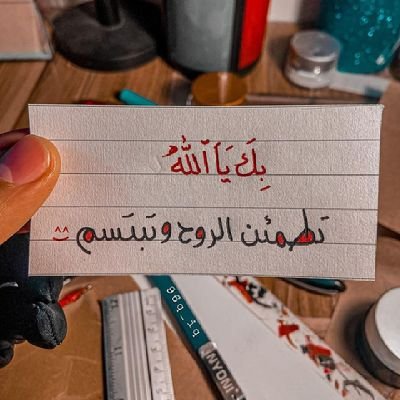 بِكَ يَا ٱللَّهُ
تَطمئن الروح وتَبتَسم ^^